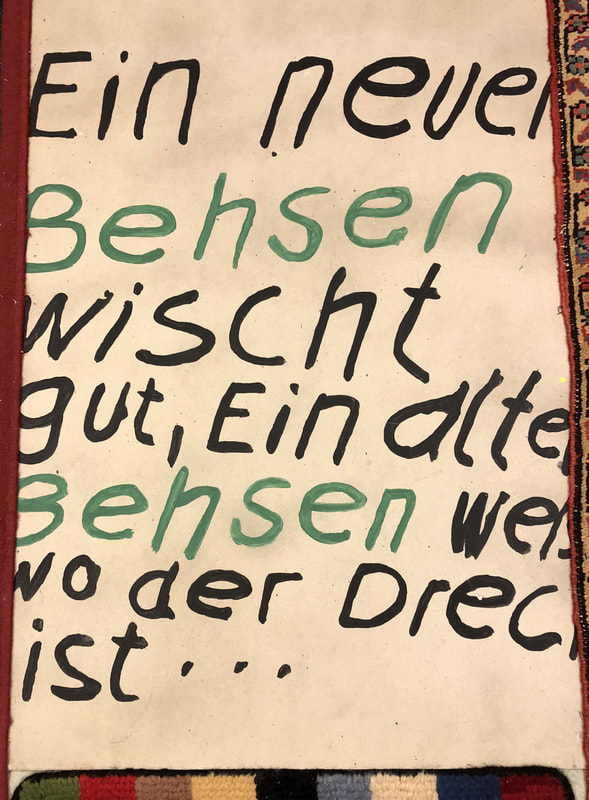 Ein neuer
Behsen
wischt
gut, Ein alte
Behsen weis
wo der Dreck
ist...